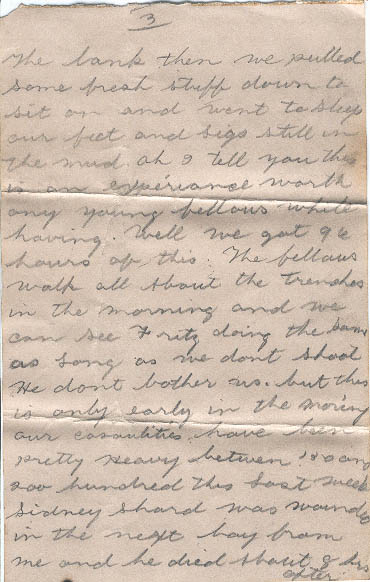 3
the bank then we pulled
some fresh stuff down to
sit on and went to sleep
our feet and legs still in
the mud. oh I tell you this
is an experiance worth
any young fellows while
having. Well we got 96
hours of this. The fellows
walk all about the trenches
in the morning and we
can see Fritz doing the same
as long as we dont shoot
He dont bother us. but this
is only early in the morning
our casaulities have been
pretty heavy betwen and
200 hundred this last week
Sidney Shard was wounded
in the next bay from
me and he died about 8 hrs
after